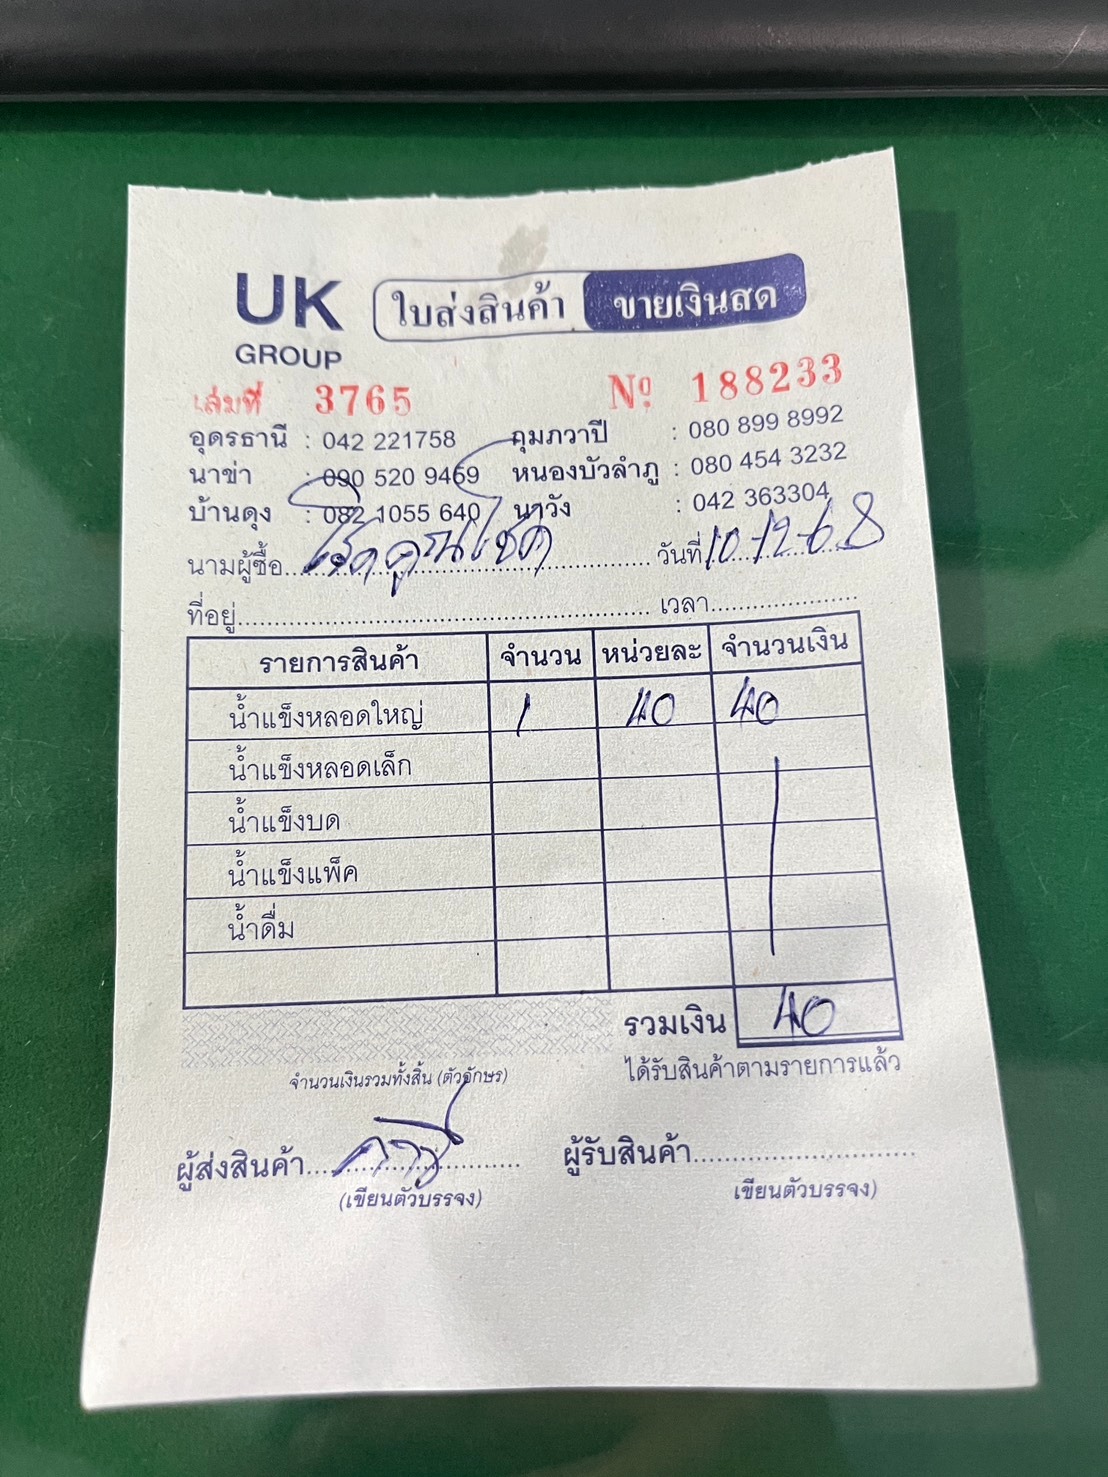 UK
GROUP
ใบส่งสินค้า ขายเงินสด
เล่มที่ 3765 Nº 188233
อุดรธานี : 042 221758 กุมภวาปี : 080 899 8992
นาข่า : 090 520 9469 หนองบัวลำภู : 080 454 3232
บ้านดุง : 082 1055 640 นาวัง : 042 363304
นามผู้ซื้อ โชคคูณโชค วันที่ 10-12-68
ที่อยู่ เวลา
รายการสินค้า จำนวน หน่วยละ จำนวนเงิน
น้ำแข็งหลอดใหญ่ 1 40 40
น้ำแข็งหลอดเล็ก
น้ำแข็งบด
น้ำแข็งแพ็ค
น้ำดื่ม
รวมเงิน 40
จำนวนเงินรวมทั้งสิ้น (ตัวอักษร) ได้รับสินค้าตามรายการแล้ว
ผู้ส่งสินค้า ผู้รับสินค้า
(เขียนตัวบรรจง) เขียนตัวบรรจง)